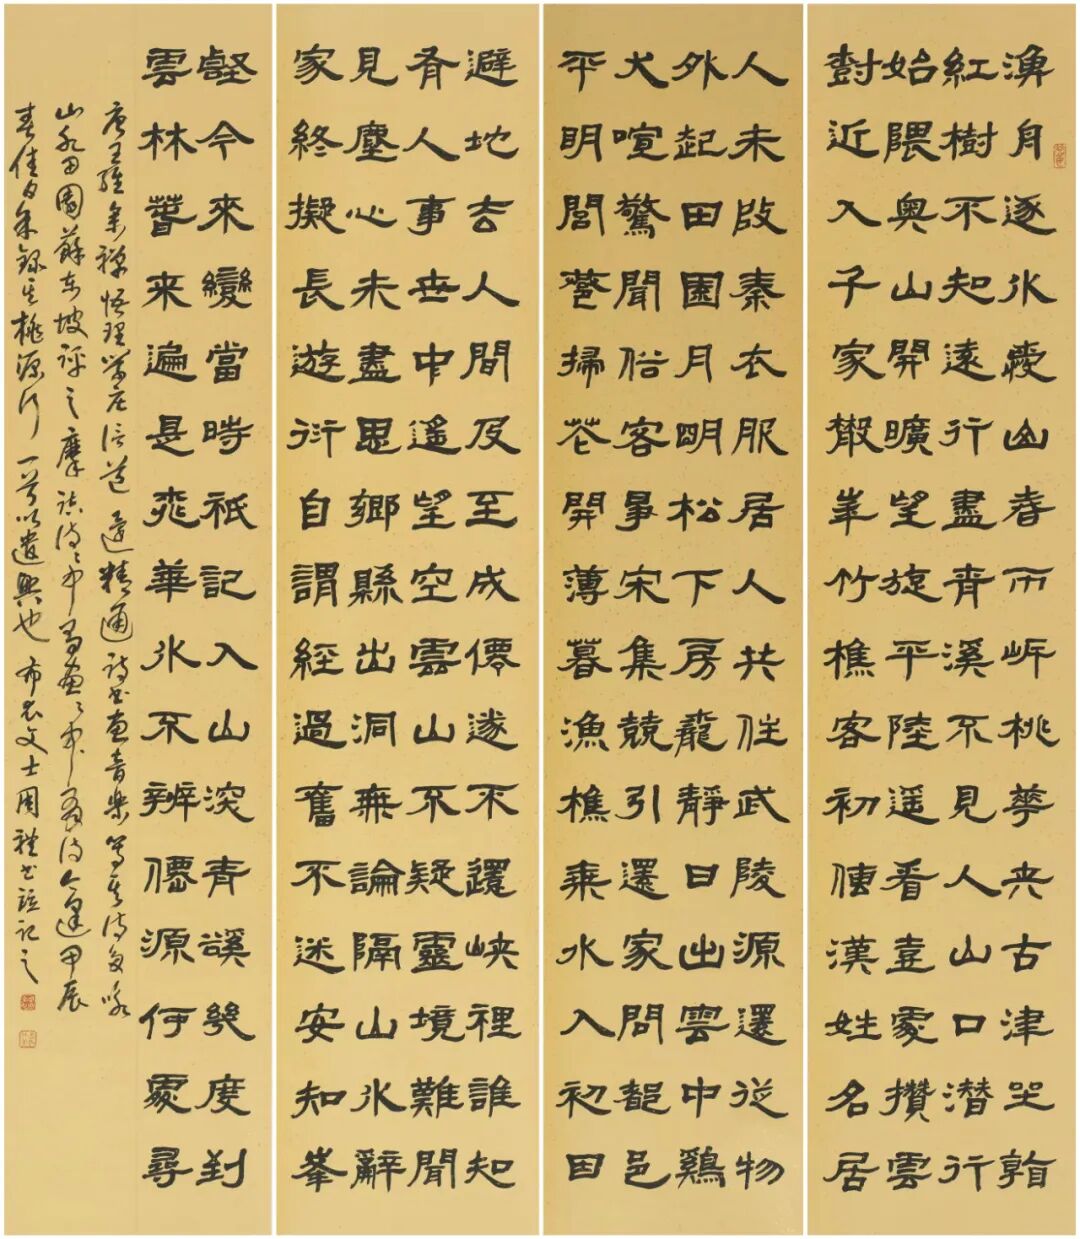 漁舟逐水愛山春兩岸桃華夾古津坐看
紅樹不知遠行盡青溪不見人山口潛行
始隈奧山開曠望旋平陸遙看壹處攢雲
樹近入千家散花竹樵客初傳漢姓名居
人未改秦衣服居人共住武陵源還從物
外起田園月明松下房櫳靜日出雲中鷄
犬喧驚聞俗客爭來集競引還家問都邑
平明閭巷掃花開薄暮漁樵乘水入初因
避地去人間及至成僊遂不還峽裡誰知
有人事世中遙望空雲山不疑靈境難聞
見塵心未盡思鄉縣出洞無論隔山水辭
家終擬長遊衍自謂經過舊不迷安知峯
壑今來變當時祇記入山深青谿幾度到
雲林春來遍是桃華水不辨僊源何處尋
唐王維參禪悟理學莊信道精通詩書畫音樂等其詩多咏
山水田園蘇東坡評之摩詰詩詩中有畫畫中有詩今逢甲辰
春佳日余錄其桃源行一首以遣興也布衣文士周禮書並記之